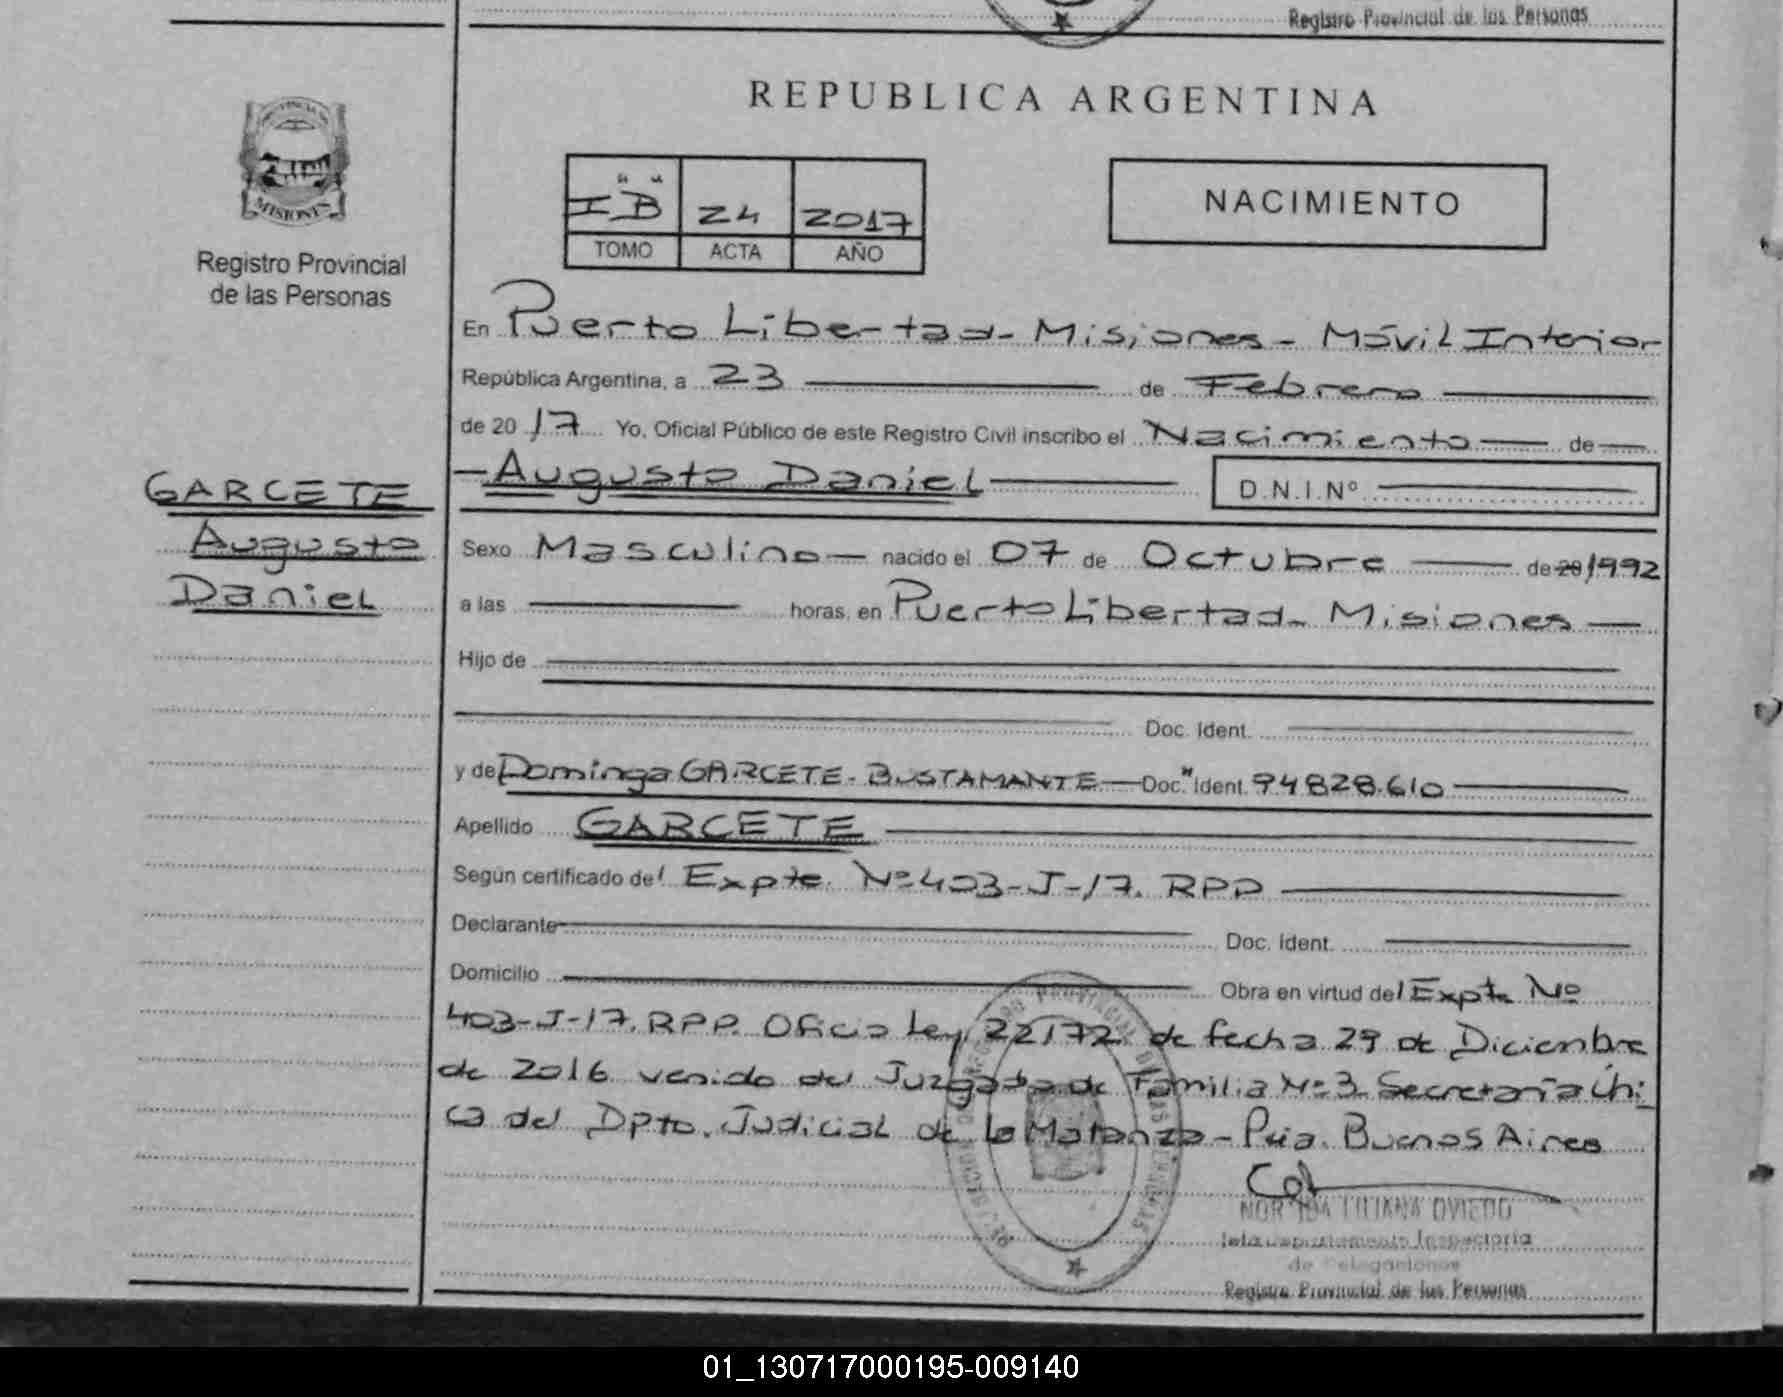 Registro Provincial de las Personas
REPUBLICA ARGENTINA
MISIONES
Registro Provincial
de las Personas
I "B" 24 2017
TOMO ACTA AÑO
NACIMIENTO
En Puerto Libertad - Misiones - Móvil Interior
República Argentina, a 23 de Febrero
de 2017 Yo, Oficial Público de este Registro Civil inscribo el Nacimiento de
Augusto Daniel D.N.I.Nº
GARCETE
Augusto
Daniel
Sexo Masculino nacido el 07 de Octubre de 20 1992
a las horas, en Puerto Libertad - Misiones
Hijo de
Doc. Ident.
y de Dominga GARCETE - BUSTAMANTE Doc. Ident. 94828.610
Apellido GARCETE
Según certificado del Expte. Nº 403-J-17. RPP
Declarante Doc. Ident.
Domicilio Obra en virtud del Expte Nº
403-J-17. RPP. Oficio Ley 22172 de fecha 29 de Diciembre
de 2016 venido del Juzgado de Familia Nº 3 Secretaría Úni
ca del Dpto. Judicial de la Matanza - Pcia. Buenos Aires
LILIANA OVIEDO
Departamento Inspectoria
de Delegaciones
Registro Provincial de las Personas
01_130717000195-009140